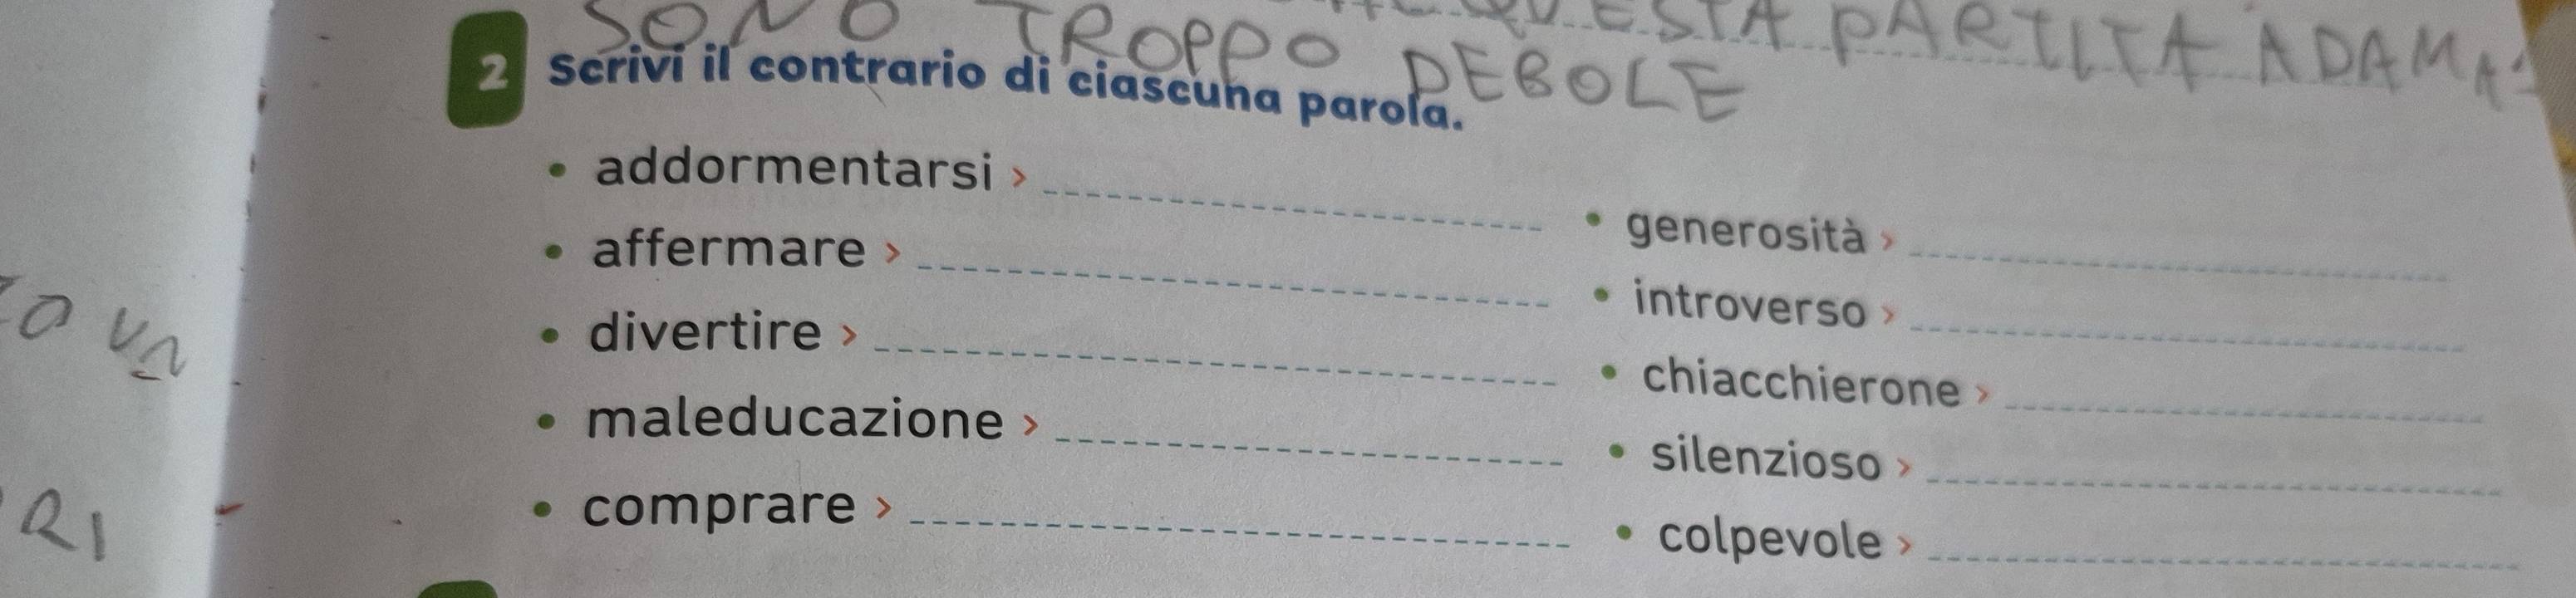 QUESTA PARTITA ADAM
SONO TROPPO DEBOLE
2 Scrivi il contrario di ciascuna parola.
• addormentarsi ›
• affermare ›
• divertire ›
• maleducazione ›
• comprare ›
• generosità ›
• introverso ›
• chiacchierone ›
• silenzioso ›
• colpevole ›
RI